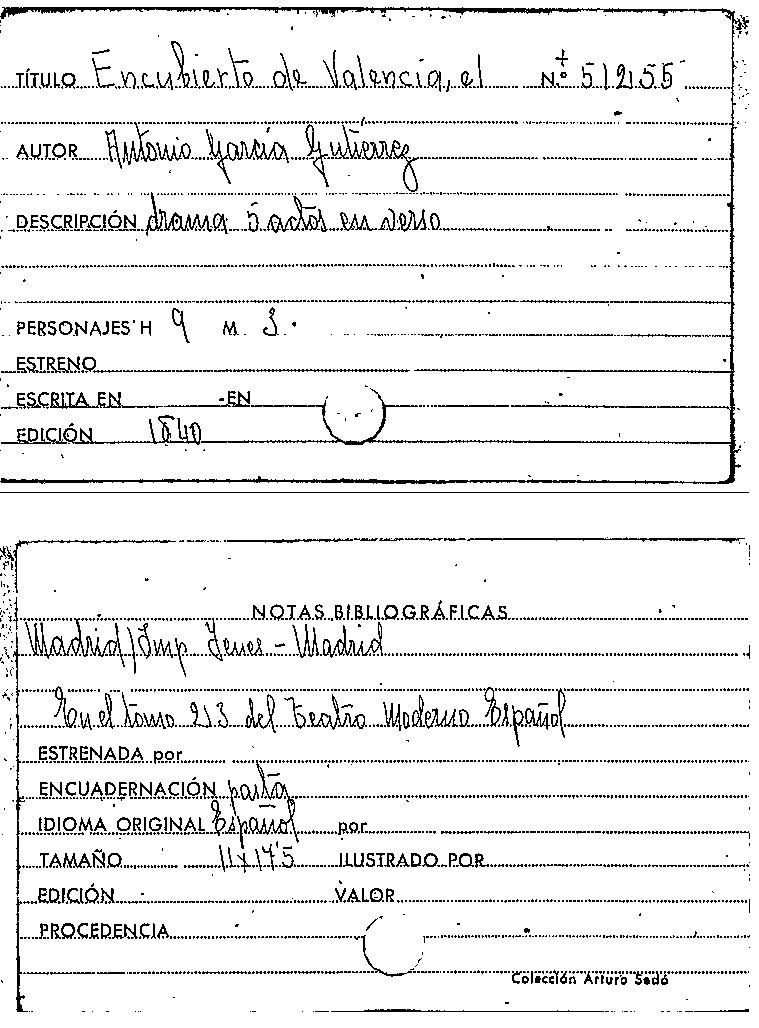 TÍTULO Encubierto de Valencia, el N.º 51255
AUTOR Antonio García Gutiérrez
DESCRIPCIÓN drama 5 actos en verso
PERSONAJES H 9 M. 3.
ESTRENO
ESCRITA EN - EN
EDICIÓN 1840
NOTAS BIBLIOGRÁFICAS
Madrid/Imp Yenes - Madrid
En el tomo 213 del Teatro Moderno Español
ESTRENADA por
ENCUADERNACIÓN pasta
IDIOMA ORIGINAL Español por
TAMAÑO 11x17'5 ILUSTRADO POR
EDICIÓN VALOR
PROCEDENCIA
Colección Arturo Sedó